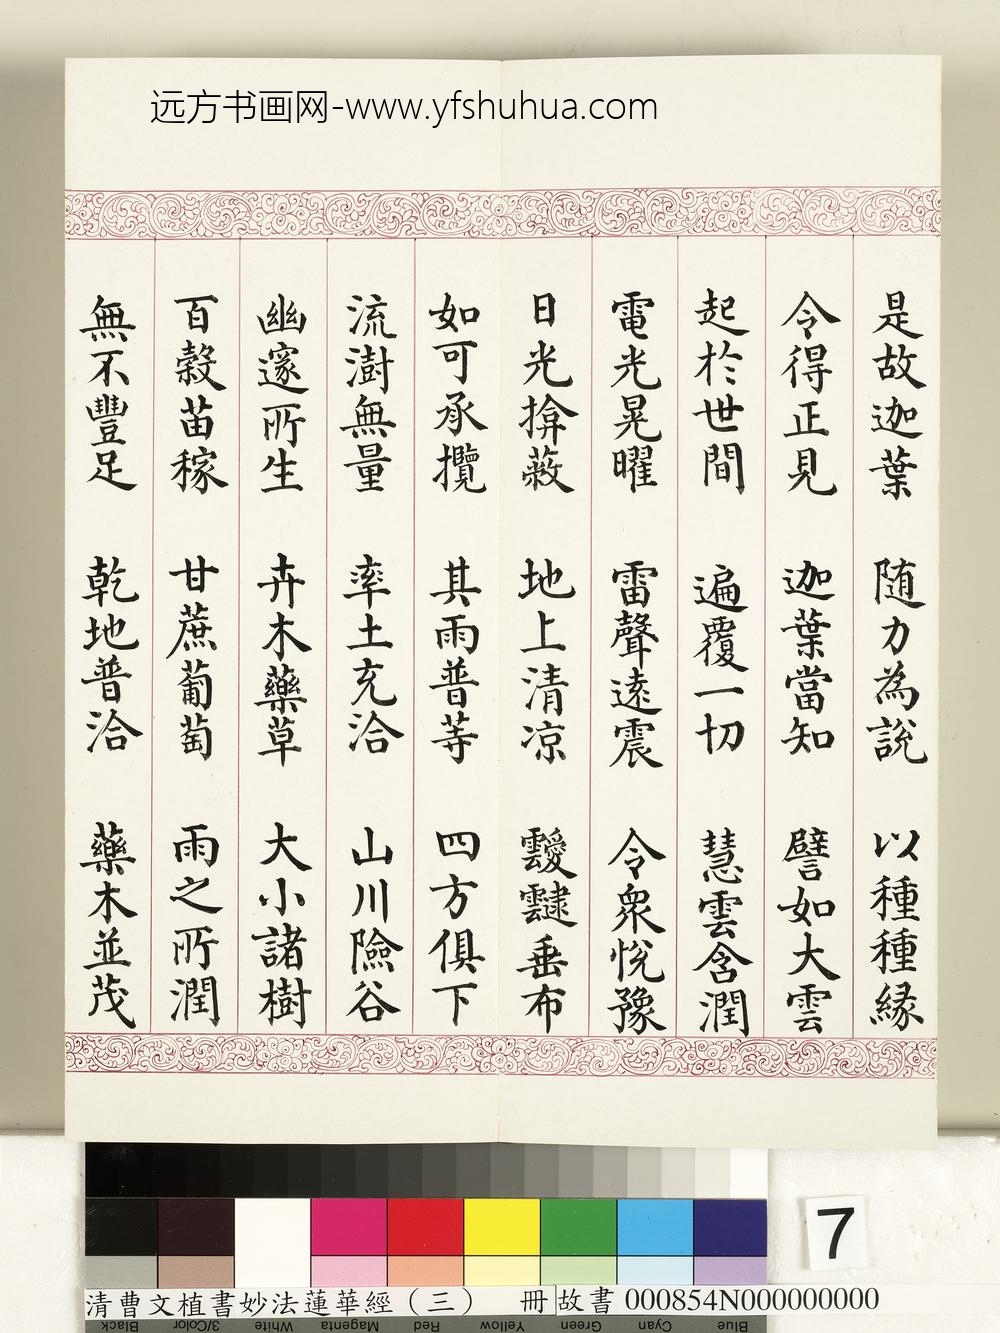 远方书画网-www.yfshuhua.com
是故迦葉 随力為說 以種種緣
令得正見 迦葉當知 譬如大雲
起於世間 遍覆一切 慧雲含潤
電光晃曜 雷聲遠震 令眾悅豫
日光揜蔽 地上清涼 靉靆垂布
如可承攬 其雨普等 四方俱下
流澍無量 率土充洽 山川險谷
幽邃所生 卉木藥草 大小諸樹
百穀苗稼 甘蔗葡萄 雨之所潤
無不豐足 乾地普洽 藥木並茂
7
清曹文植書妙法蓮華經(三) 冊 故書 000854N000000000
Black 3/Color White Magenta Red Yellow Green Cyan Blue